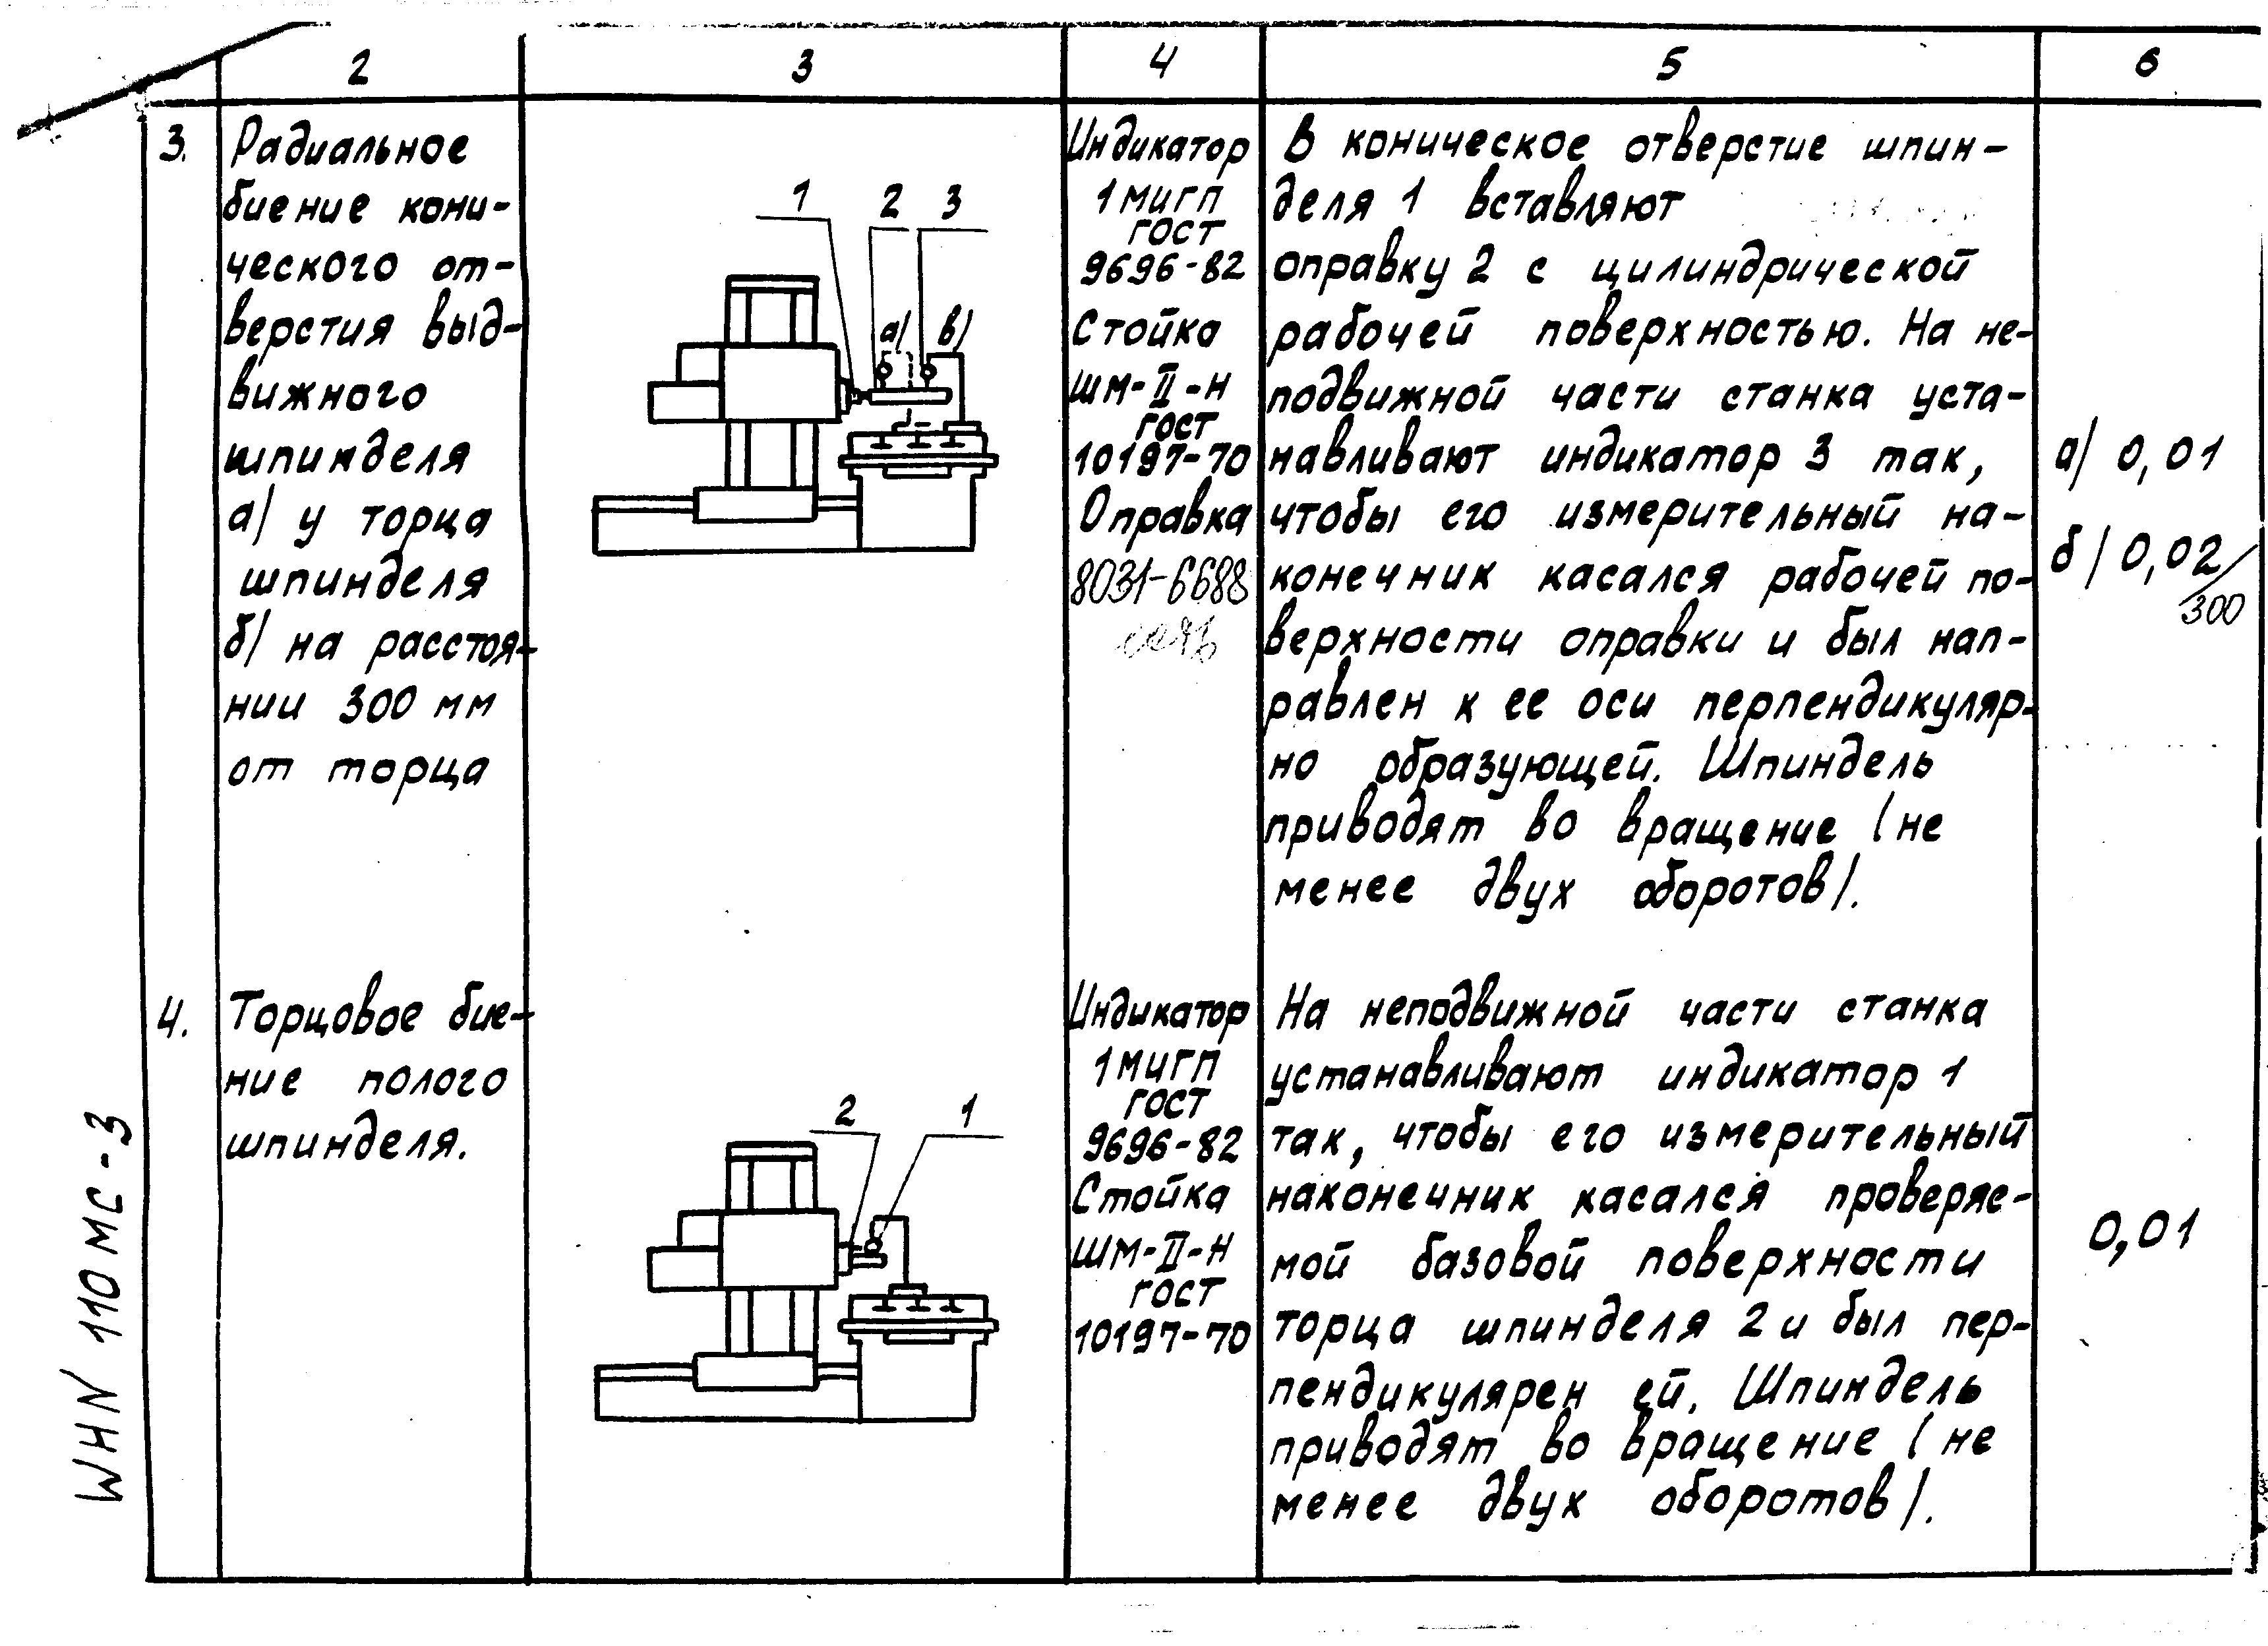 2 3 4 5 6
3.
Радиальное
биение кони-
ческого от-
верстия выд-
вижного
шпинделя
а/ у торца
шпинделя
б/ на расстоя-
нии 300 мм
от торца
1 2 3
а/ в/
Индикатор
1МИГП
ГОСТ
9696-82
Стойка
ШМ-II-Н
ГОСТ
10197-70
Оправка
8031-6688
В коническое отверстие шпин-
деля 1 вставляют
оправку 2 с цилиндрической
рабочей поверхностью. На не-
подвижной части станка уста-
навливают индикатор 3 так,
чтобы его измерительный на-
конечник касался рабочей по-
верхности оправки и был нап-
равлен к ее оси перпендикуляр-
но образующей. Шпиндель
приводят во вращение (не
менее двух оборотов).
а/ 0,01
б/ 0,02/300
4.
Торцовое бие-
ние полого
шпинделя.
2 1
Индикатор
1МИГП
ГОСТ
9696-82
Стойка
ШМ-II-Н
ГОСТ
10197-70
На неподвижной части станка
устанавливают индикатор 1
так, чтобы его измерительный
наконечник касался проверяе-
мой базовой поверхности
торца шпинделя 2 и был пер-
пендикулярен ей. Шпиндель
приводят во вращение (не
менее двух оборотов).
0,01
WHN 110 MC-3